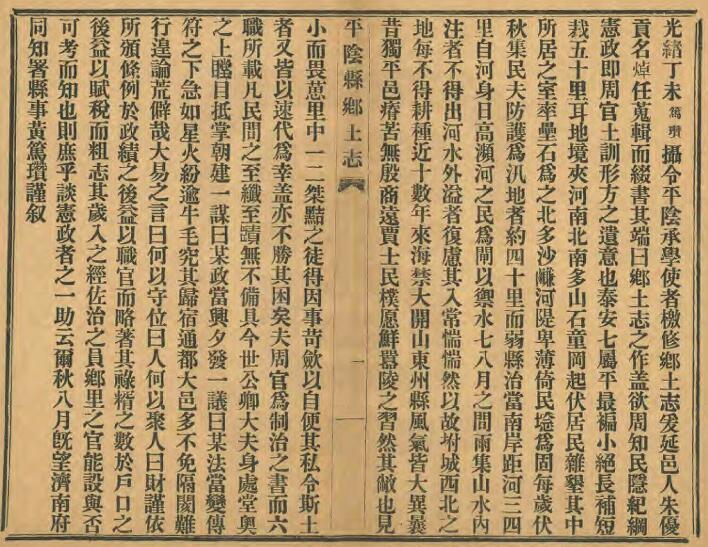 光緒丁未篤瓚攝令平陰承學使者檄修鄉土志爰延邑人朱優
貢名焯任蒐輯而綴書其端曰鄉土志之作蓋欲周知民隱紀綱
憲政即周官土訓形方之遺意也泰安七屬平最褊小絕長補短
裁五十里耳地境夾河南北南多山石童岡起伏居民雜墾其中
所居之室率壘石爲之北多沙磏河隄卑薄倚民埝爲固每歲伏
秋集民夫防護爲汛地者約四十里而弱縣治當南岸距河三四
里自河身日高瀕河之民爲閘以禦水七八月之間雨集山水內
注者不得出河水外溢者復慮其入常惴惴然以故坿城西北之
地每不得耕種近十數年來海禁大開山東州縣風氣皆大異曩
昔獨平邑瘠苦無殷商遠賈士民樸愿鮮囂陵之習然其敝也見
平陰縣鄉土志
一
小而畏葸里中一二桀黠之徒得因事苛斂以自便其私令斯土
者又皆以速代爲幸蓋亦不勝其困矣夫周官爲制治之書而六
職所載凡民間之至纖至賾無不備具今世公卿大夫身處堂奧
之上瞠目抵掌朝建一謀曰某政當興夕發一議曰某法當變傳
符之下急如星火紛逾牛毛究其歸宿通都大邑多不免隔閡難
行遑論荒僻哉大易之言曰何以守位曰人何以聚人曰財謹依
所頒條例於政績之後益以職官而略著其祿糈之數於戶口之
後益以賦稅而粗志其歲入之經佐治之員鄉里之官能設與否
可考而知也則庶乎談憲政者之一助云爾秋八月旣望濟南府
同知署縣事黃篤瓚謹叙